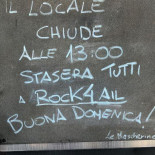 IL LOCALE
CHIUDE
ALLE 13:00
STASERA TUTTI
A ROCK4AIL
BUONA DOMENICA!
Le Mascherine